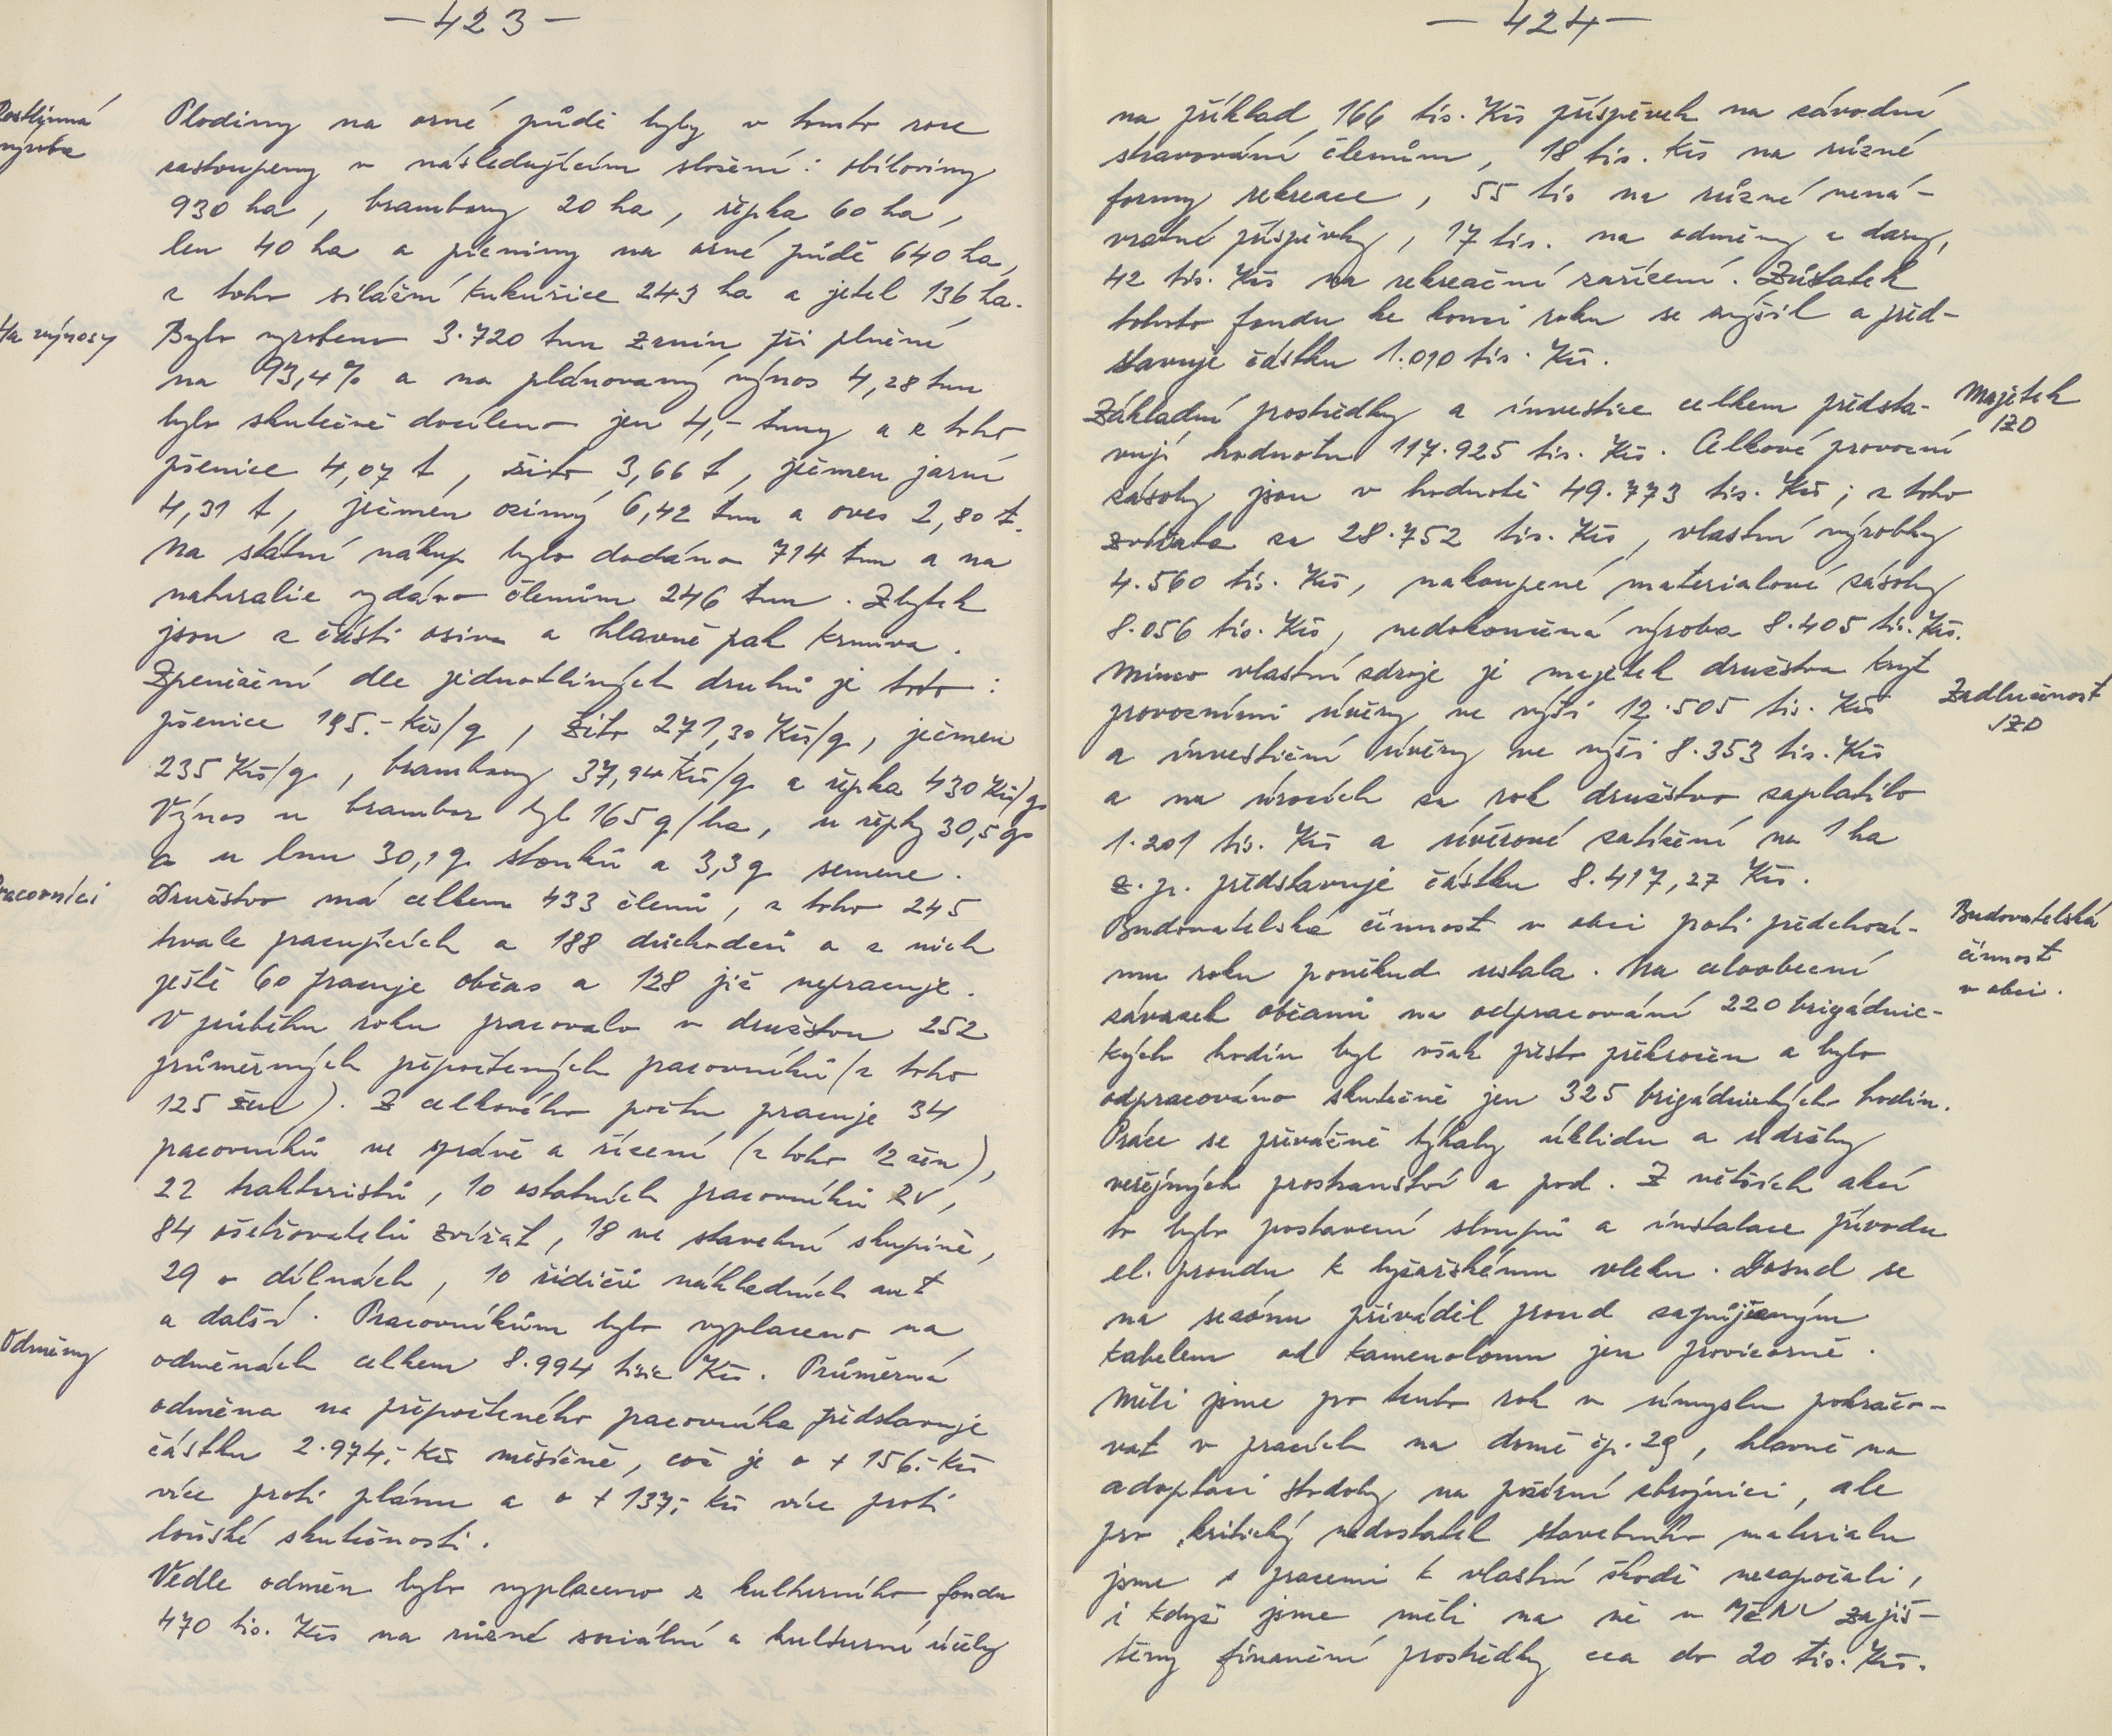 — 423 —
Rostlinná
výroba
Plodiny na orné půdě byly v tomto roce
zastoupeny v následujícím složení: obiloviny
930 ha, brambory 20 ha, řepka 60 ha,
len 40 ha a pícniny na orné půdě 640 ha,
z toho silážní kukuřice 243 ha a jetel 136 ha.
Ha výnosy
Bylo vyrobeno 3.720 tun zrnin při plnění
na 93,4% a na plánovaný výnos 4,28 tun
bylo skutečně docíleno jen 4,- tuny a z toho
pšenice 4,07 t, žito 3,66 t, ječmen jarní
4,31 t, ječmen ozimý 6,42 tun a oves 2,80 t.
Na státní nákup bylo dodáno 714 tun a na
naturalie vydáno členům 246 tun. Zbytek
jsou z části osiva a hlavně pak krmiva.
Zpeněžení dle jednotlivých druhů je toto:
pšenice 195.- Kčs/q, žito 271,30 Kčs/q, ječmen
235 Kčs/q, brambory 37,94 Kčs/q a řepka 430 Kčs/q.
Výnos u brambor byl 165 q/ha, u řepky 30,5 q
a u lnu 30,1 q stonků a 3,3 q semene.
Pracovníci
Družstvo má celkem 433 členů, z toho 245
trvale pracujících a 188 důchodců a z nich
ještě 60 pracuje občas a 128 již nepracuje.
V průběhu roku pracovalo v družstvu 252
průměrných přepočtených pracovníků (z toho
125 žen). Z celkového počtu pracuje 34
pracovníků ve správě a řízení (z toho 12 žen),
22 traktoristů, 10 ostatních pracovníků RV,
84 ošetřovatelů zvířat, 18 ve stavební skupině,
29 v dílnách, 10 řidičů nákladních aut
a další. Pracovníkům bylo vyplaceno na
Odměny
odměnách celkem 8.994 tisíc Kčs. Průměrná
odměna na přepočteného pracovníka představuje
částku 2.974,- Kčs měsíčně, což je o + 156.- Kčs
více proti plánu a o + 137,- Kčs více proti
loňské skutečnosti.
Vedle odměn bylo vyplaceno z kulturního fondu
470 tis. Kčs na různé sociální a kulturní účely
— 424 —
na příklad 166 tis. Kčs příspěvek na závodní
stravování členům, 18 tis. Kčs na různé
formy rekreace, 55 tis na různé nená-
vratné příspěvky, 17 tis. na odměny a dary,
42 tis. Kčs na rekreační zařízení. Zůstatek
tohoto fondu ke konci roku se zvýšil a před-
stavuje částku 1.010 tis. Kčs.
Majetek
JZD
Základní prostředky a investice celkem předsta-
vují hodnotu 117.925 tis. Kčs. Celkové provozní
zásoby jsou v hodnotě 49.773 tis. Kčs; z toho
zvířata za 28.752 tis. Kčs, vlastní výrobky
4.560 tis. Kčs, nakoupené materialové zásoby
8.056 tis. Kčs, nedokončená výroba 8.405 tis. Kčs.
Mimo vlastní zdroje je majetek družstva kryt
Zadluženost
JZD
provozními úvěry ve výši 12.505 tis. Kčs
a investiční úvěry ve výši 8.353 tis. Kčs
a na úrocích za rok družstvo zaplatilo
1.201 tis. Kčs a úvěrové zatížení na 1 ha
z. p. představuje částku 8.417,27 Kčs.
Budovatelská
činnost
v obci.
Budovatelská činnost v obci proti předchozí-
mu roku poněkud ustala. Na celoobecní
závazek občanů na odpracování 220 brigádnic-
kých hodin byl však přesto překročen a bylo
odpracováno skutečně jen 325 brigádnických hodin.
Práce se převážně týkaly úklidu a údržby
veřejných prostranství a pod. Z větších akcí
to bylo postavení sloupů a instalace přívodu
el. proudu k lyžařskému vleku. Dosud se
na sezónu přiváděl proud zapůjčeným
kabelem od kamenolomu jen provizorně.
Měli jsme pro tento rok v úmyslu pokračo-
vat v pracích na domě čp. 29, hlavně na
adaptaci stodoly na požární zbrojnici, ale
pro kritický nedostatek stavebního materialu
jsme s pracemi k vlastní škodě nezapočali,
i když jsme měli na ně u MěNV zajiš-
těny finanční prostředky cca do 20 tis. Kčs.